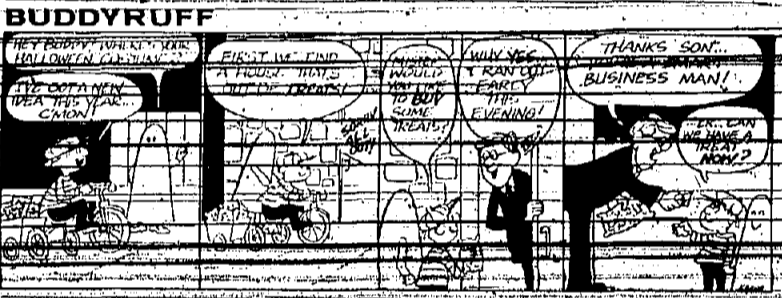 BUDDYRUFF
HEY BUDDY! WHERE'S YOUR
HALLOWEEN COSTUME?
I'VE GOT A NEW
IDEA THIS YEAR...
C'MON!
FIRST WE FIND
A HOUSE THAT'S
OUT OF TREATS!
SORRY
ALL
OUT!
MISTER
WOULD
YOU LIKE
TO BUY
SOME
TREATS?
WHY YES
I RAN OUT
EARLY
THIS
EVENING!
THANKS SON...
BUSINESS MAN!
...ER... CAN
WE HAVE A
TREAT
NOW!?